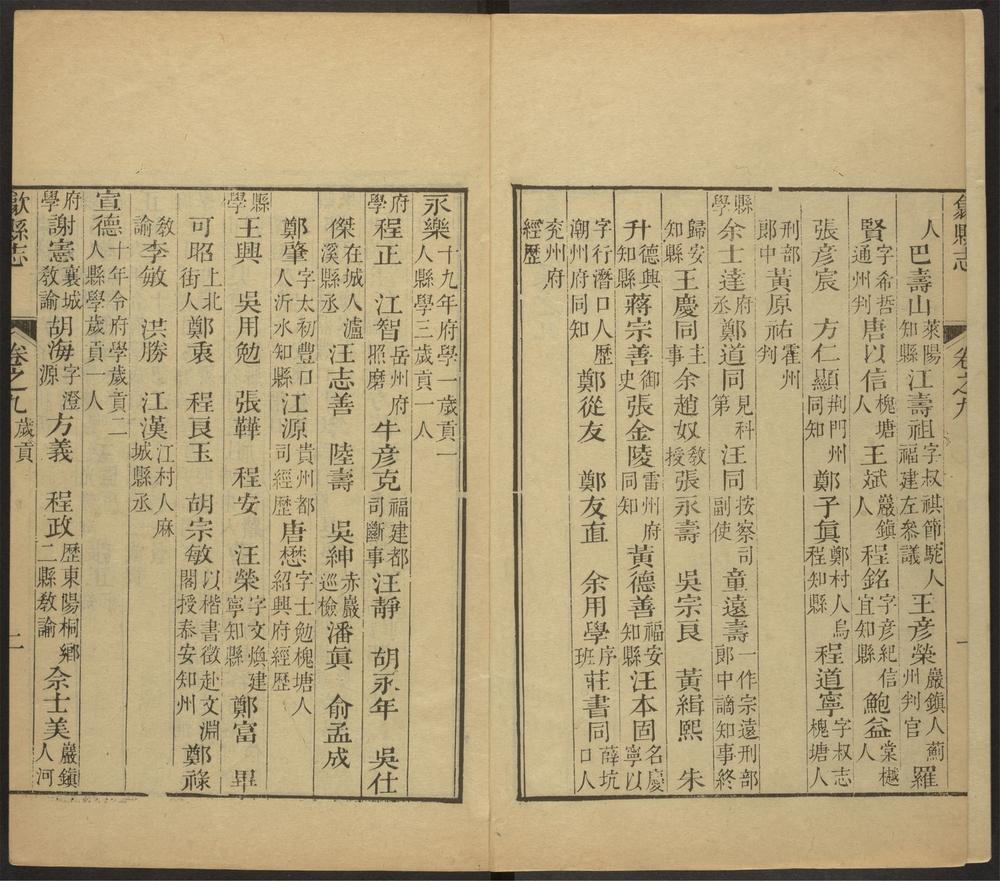 歙縣志 卷之九 一
人巴壽山萊陽知縣江壽祖字叔祺節駝人福建左參議王彥榮巖鎮人薊州判官羅
賢字希哲通州判唐以信槐塘人王斌巖鎮人程銘字彥紀信宜知縣鮑益棠樾人
張彥宸 方仁顯荆門州同知鄭子眞鄭村人烏程知縣程道寧字叔志槐塘人
刑部郎中黃原祐霍州判
縣學余士達府丞鄭道同見科第汪同按察司副使童遠壽一作宗遠刑部郎中謫知事終
歸安知縣王慶同主事余趙奴敎授張永壽 吳宗良 黃緝熙 朱
升德興知縣蔣宗善御史張金陵雷州府同知黃德善福安知縣汪本固名慶寧以
字行潛口人歷潮州府同知鄭從友 鄭友直 余用學序班莊書同薛坑口人
兖州府經歷
永樂十九年府學一歲貢一人縣學三歲貢一人
府學程正 江智岳州府照磨牛彥克福建都司斷事汪靜 胡永年 吳仕
傑在城人瀘溪縣丞汪志善 陸壽 吳紳赤巖巡檢潘眞 俞孟成
鄭肇字太初豐口人沂水知縣江源貴州都司經歷唐懋字士勉槐塘人紹興府經歷
縣學王興 吳用勉 張鞾 程安 汪榮字文煥建寧知縣鄭富 畢
可昭上北街人鄭衷 程良玉 胡宗敏以楷書徵赴文淵閣授泰安知州鄭祿
敎諭李敏 洪勝 江漢江村人麻城縣丞
宣德十年令府學歲貢二人縣學歲貢一人
府學謝憲襄城敎諭胡海字澄源方義 程政歷東陽桐鄉二縣敎諭佘士美巖鎮人河
歙縣志 卷之九 歲貢 二